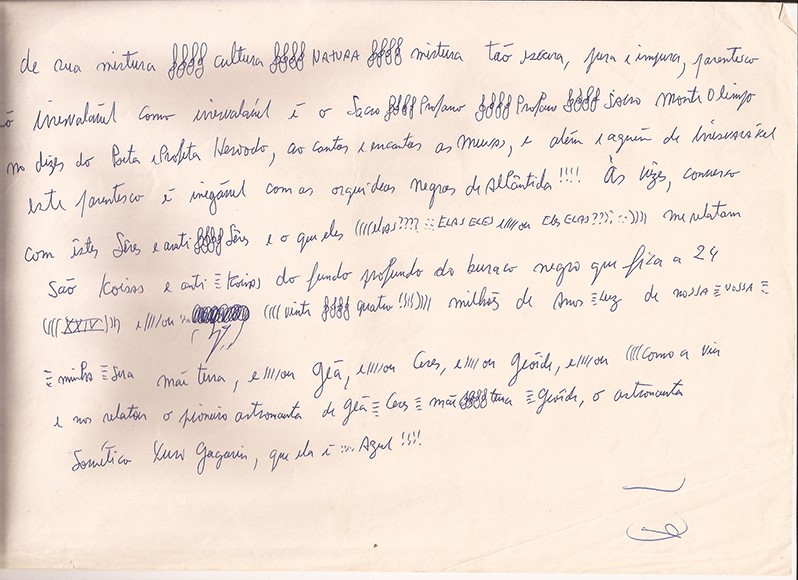 de sua mistura ∮∮∮∮ cultura ∮∮∮∮ NATURA ∮∮∮∮ mistura tão escura, pura e impura, parentesco
tão inexualável como inexualável é o Sacro ∮∮∮∮ Profano ∮∮∮∮ Profano ∮∮∮∮ SACRO Monte Olimpo
no dizer do Poeta e Profeta Hesíodo, ao cantar e encantar as Musas, e além e aquém de
este parentesco é inegável com as orquídeas negras de Atlântida!!!! Às vêzes, converso
com êstes Sêres e anti∮∮∮∮Sêres e o que eles ((((elas???? ::: ELAS ELES e////ou ELES ELAS???? :::)))) me relatam
São Koisas e anti ≡ Koisas do fundo profundo do buraco negro que fica a 24
((((XXIV)))) e////ou ((((vinte ∮∮∮∮ quatro!!!!)))) milhões de Anos ≡ Luz de nossa ≡ vossa ≡
≡ minha ≡ sua mãe terra, e////ou Geã, e////ou Ceres, e////ou Geóide, e////ou ((((como a viu
e nos relatou o pioneiro astronauta de Geã ≡ Ceres ≡ mãe ∮∮∮∮ terra ≡ Geóide, o astronauta
Soviético Yuri Gagarin, que ela é ::: Azul!!!!